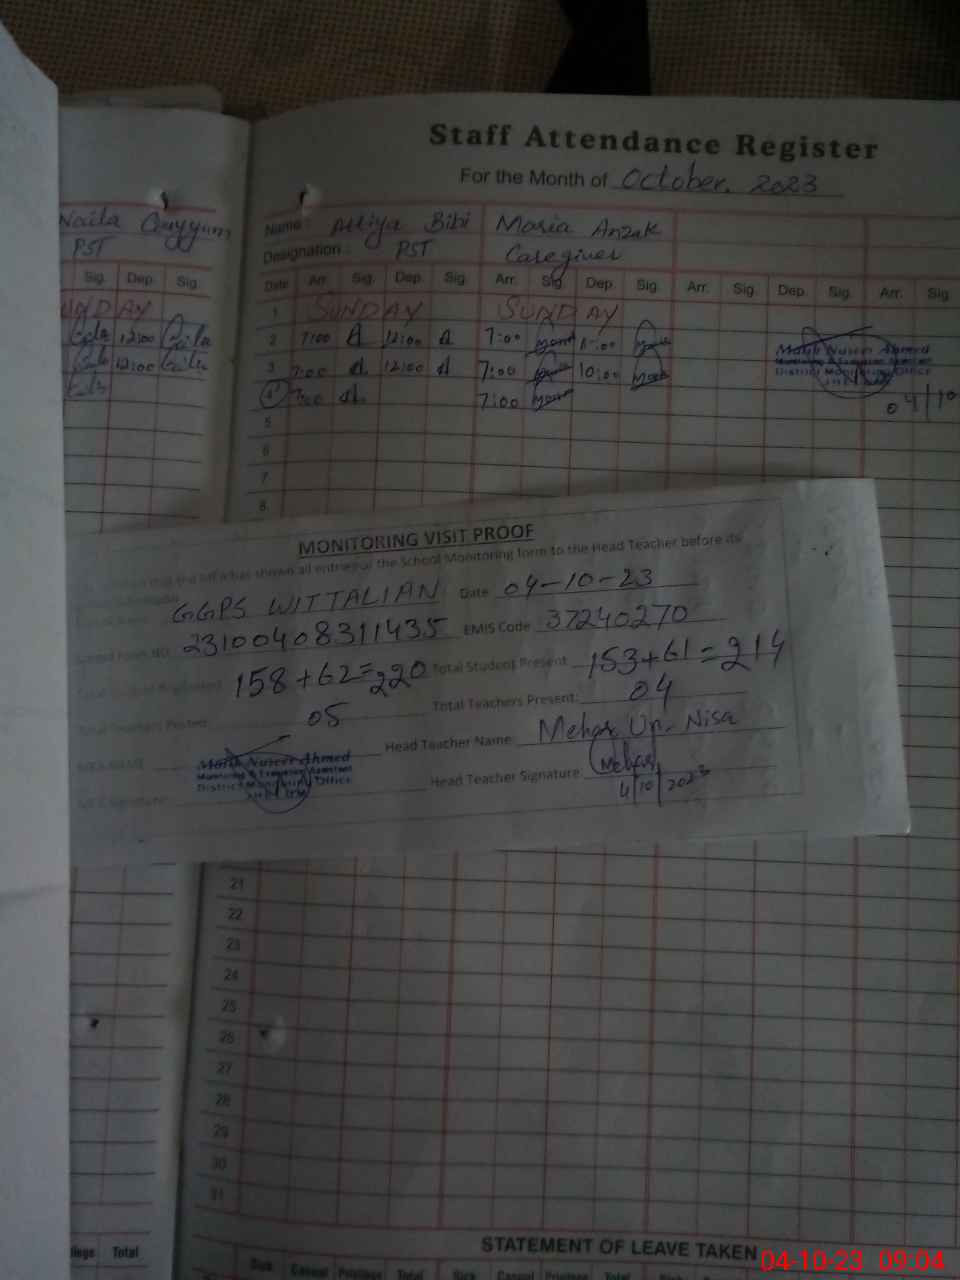 Staff Attendance Register
For the Month of October, 2023
Naila Qayyum
PST
Sig. Dep. Sig.
SUNDAY
12:00
12:00
Name: Attiya Bibi Maria Anzak
Designation: PST Caregiver
Date Arr. Sig. Dep. Sig. Arr. Sig. Dep. Sig. Arr. Sig. Dep. Sig. Arr. Sig.
1 SUNDAY SUNDAY
2 7:00 A 12:00 A 7:00
3 7:00 A 12:00 A 7:00 10:00
4 7:00 A 7:00
5
6
7
8
Malik Naseer Ahmed
Monitoring & Evaluation Assistant
District Monitoring Office
04/10
MONITORING VISIT PROOF
has shown all entries of the School Monitoring form to the Head Teacher before its
GGPS WITTALIAN Date 04-10-23
23100408311435 EMIS Code 37240270
158+62=220 Total Student Present 153+61=214
Total Teachers Posted 05 Total Teachers Present: 04
Head Teacher Name: Mehar Un-Nisa
Malik Naseer Ahmed
Monitoring & Evaluation Assistant
District Monitoring Office
Head Teacher Signature: Mehar
4/10/2023
21
22
23
24
25
26
27
28
29
30
31
STATEMENT OF LEAVE TAKEN
Total
Sick Casual Privilege Total Sick Casual Privilege Total
04-10-23 09:04